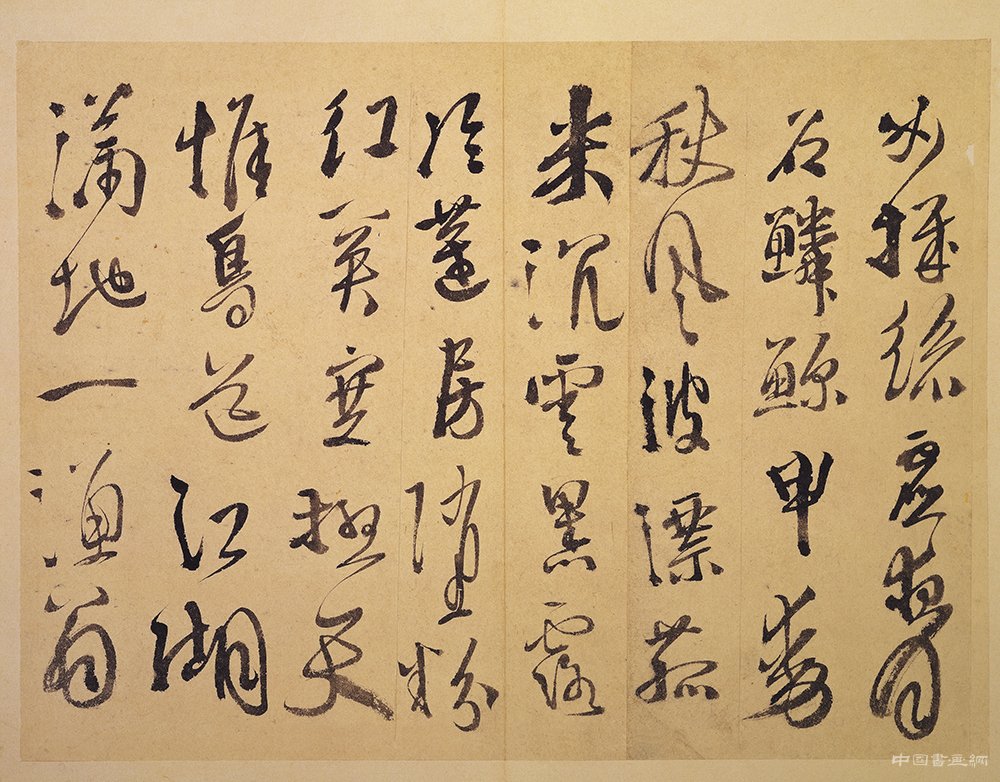 女機絲虛夜月
石鱗鯨甲動
秋風波漂菰
米沉雲黑露
冷蓮房墮粉
紅關塞極天
惟鳥道江湖
滿地一漁翁
中国書画網